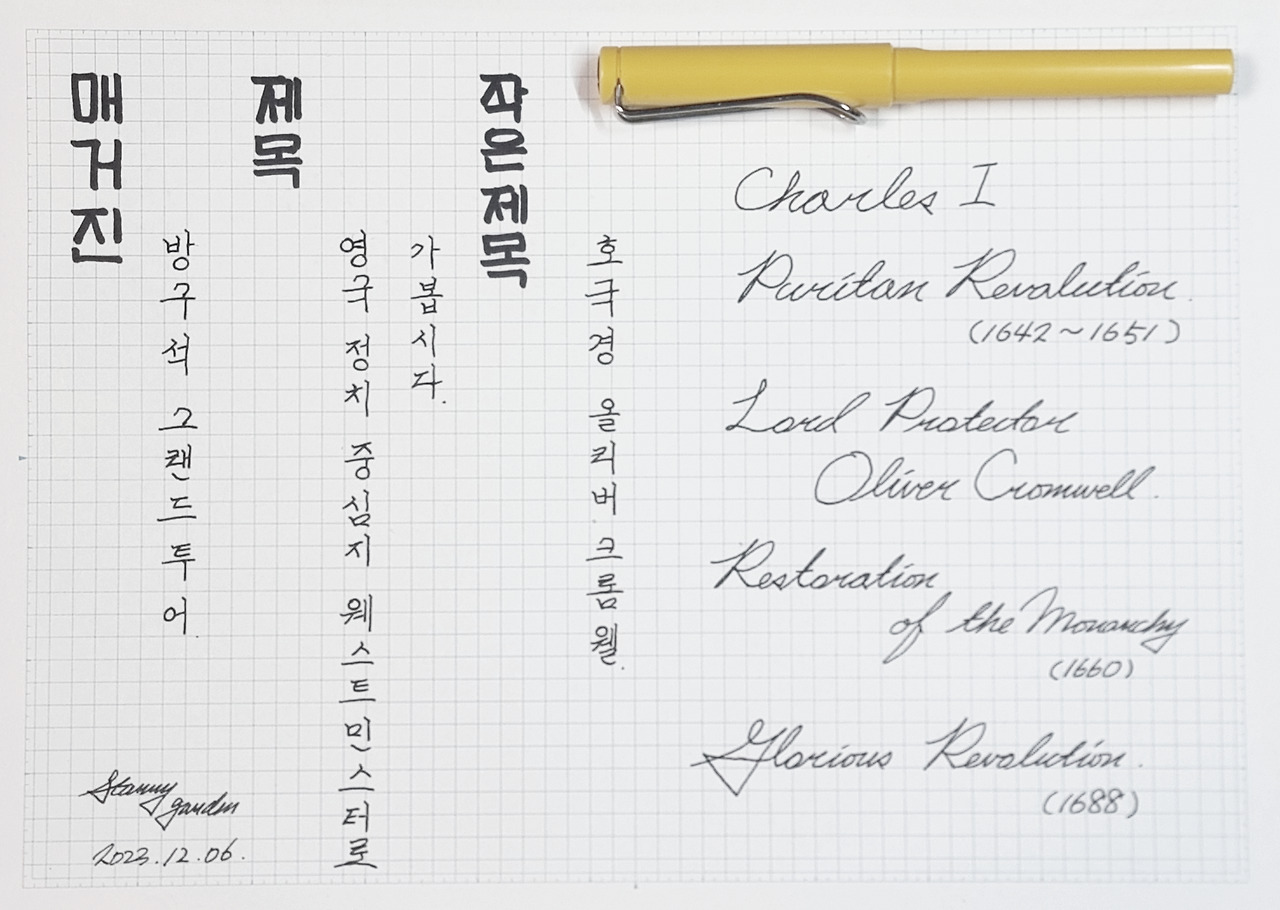 매거진
방구석 그랜드 투어.
제목
영국 정치 중심지 웨스트민스터로
가봅시다.
작은제목
호국경 올리버 크롬웰.
Charles I
Puritan Revolution.
(1642~1651)
Lord Protector
Oliver Cromwell.
Restoration
of the Monarchy
(1660)
Glorious Revolution.
(1688)
2023.12.06.